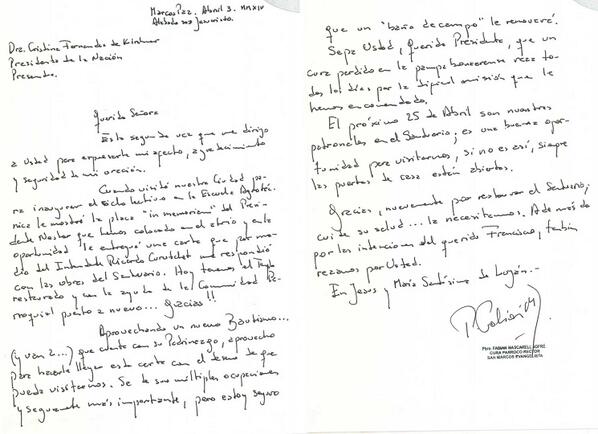 Marcos Paz. Abril 3. MMXIV
Alabado sea Jesucristo.
Dra. Cristina Fernandez de Kirchner
Presidenta de la Nación
Presente.
Querida Señora
Esta segunda vez que me dirijo
a Usted para expresarle mi afecto, agradecimiento
y seguridad de mi oración.
Cuando visitó nuestra Ciudad pa-
ra inaugurar el ciclo lectivo en la Escuela Agrotéc-
nica le mostré la placa "in memoriam" del Presi-
dente Nestor que hemos colocado en el atrio y en la
oportunidad le entregué una carta que por me-
dio del Intendente Ricardo Curutchet me respondió
con las obras del Santuario. Hoy tenemos el Templo
restaurado y con la ayuda de la Comunidad Pa-
rroquial puesto a nuevo... Gracias!!
Aprovechando un nuevo Bautismo...
(y van 2...) que cuenta con su Padrinazgo, aprovecho
para hacerle llegar esta carta con el deseo de que
pueda visitarnos. Se de sus múltiples ocupaciones
y seguramente más importante, pero estoy seguro
que un "baño de campo" le renovaré.
Sepa Usted, Querida Presidente, que un
cura perdido en la pampa bonaerense reza to-
dos los días por la difícil misión que le
hemos encomendado.
El próximo 25 de Abril son nuestras
patronales en el Santuario; es una buena opor-
tunidad para visitarnos, si no es así, siempre
las puertas de casa están abiertas.
Gracias, nuevamente por restaurar el Santuario,
cuide su salud... la necesitamos. Además de
por las intenciones del querido Francisco, también
rezamos por Usted.
En Jesus y María Santísima de Luján.-
Pbro. FABIAN MASCARELL JOFRE
CURA PARROCO RECTOR
SAN MARCOS EVANGELISTA